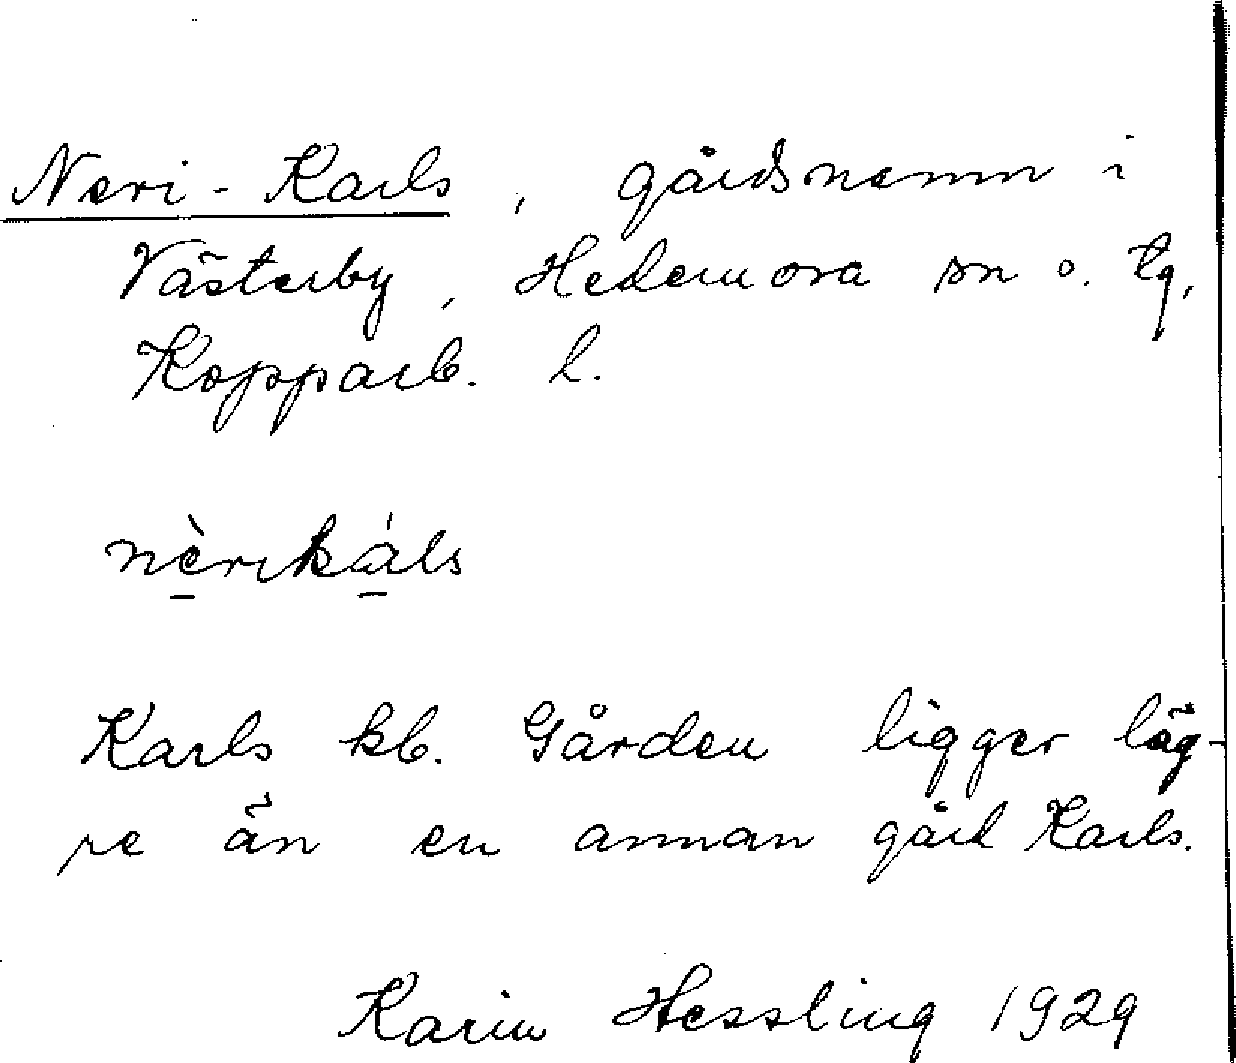 Neri-Karls, gårdsnamn i
Västerby, Hedemora sn o. tg,
Kopparb. l.
nèrikáls
Karls kb. Gården ligger läg-
re än en annan gård Karls.
Karin Hessling 1929